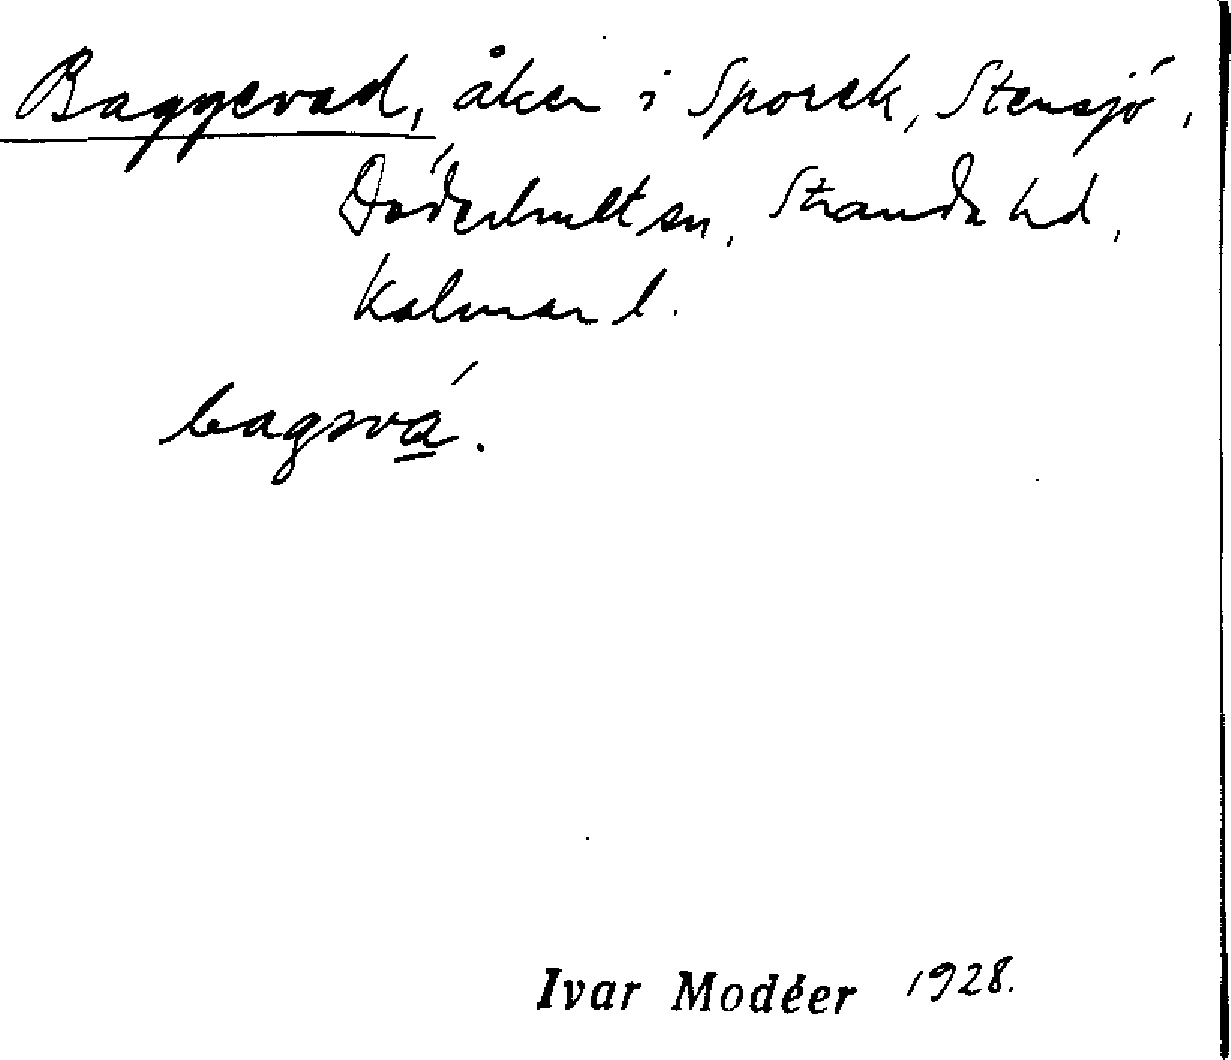 Baggevad, åker i Sporek, Stensjö,
Döderhult sn, Stranda hd,
Kalmar l.
bagəvá.
Ivar Modéer 1928.